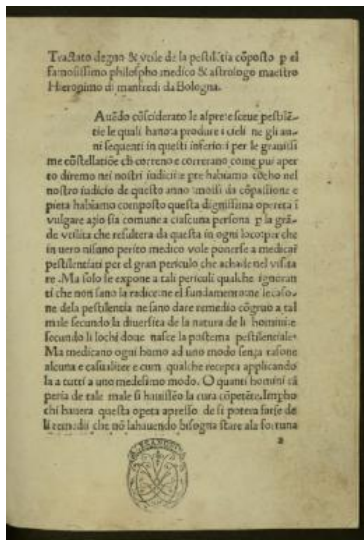 Tractato degno & vtile de la pestilẽtia cõposto p el
famosissimo philosopho medico & astrologo maestro
Hieronimo di manfredi da Bologna.
Auẽdo cõsiderato le aspre: e seue pestilẽ-
tie le quali hano: a produre i cieli ne gli an-
ni sequenti in questi inferiori per le grauissi
me cõstellatiõe che correno e correrano come piu aper
to diremo nei nostri iudicii: e pre habiamo cõcho nel
nostro iudicio de questo anno: mossi da cõpassione e
pieta habiamo composto questa dignissima opereta i
vulgare azio sia comune a ciascuna persona p la grã-
de vtilita che resultera da questa in ogni loco: par che
in uero nisuno perito medico vole ponerse a medicar
pestilentiati per el gran periculo che achade nel visita
re. Ma solo se expone a tali periculi qualche ignoran
ti che non sano la radice: ne el fundamento: ne le caso-
ne dela pestilentia ne sano dare remedio cõgruo a tal
male secundo la diuersita de la natura de li homini: e
secundo li lochi doue nasce la postema pestilentiale.
Ma medicano ogni homo ad uno modo senza rasone
alcuna e casualiter e cum qualche recepta applicando
la a tutti a uno medesimo modo. O quanti homini cã
peria de tale male si hauissẽo la cura cõpetẽte. Impho
chi hauera questa opera apresso de si potera farse de
li remedii che nõ la hauendo bisogna stare ala fortuna
a